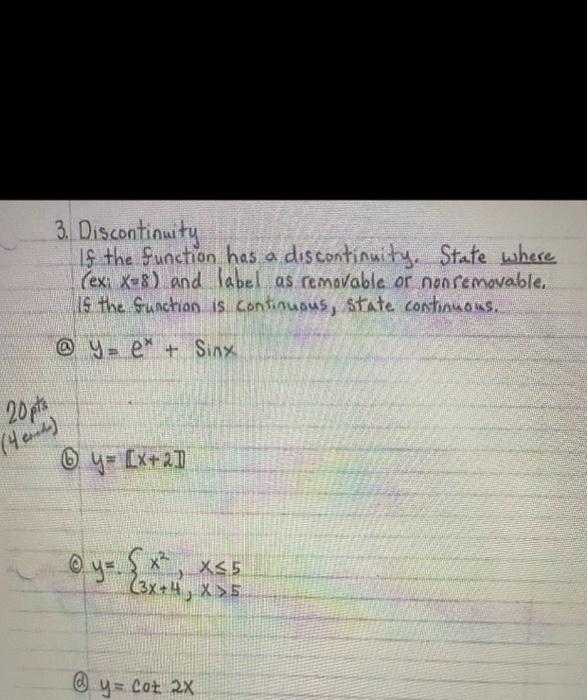 3. Discontinuity
If the function has a discontinuity. State where
(ex: x=8) and label as removable or nonremovable.
If the function is continuous, state continuous.
ⓐ y = eˣ + Sinx
20 pts
(4 each)
ⓑ y = ⟦x+2⟧
ⓒ y = { x², x≤5
3x+4, x>5
ⓓ y = cot 2x